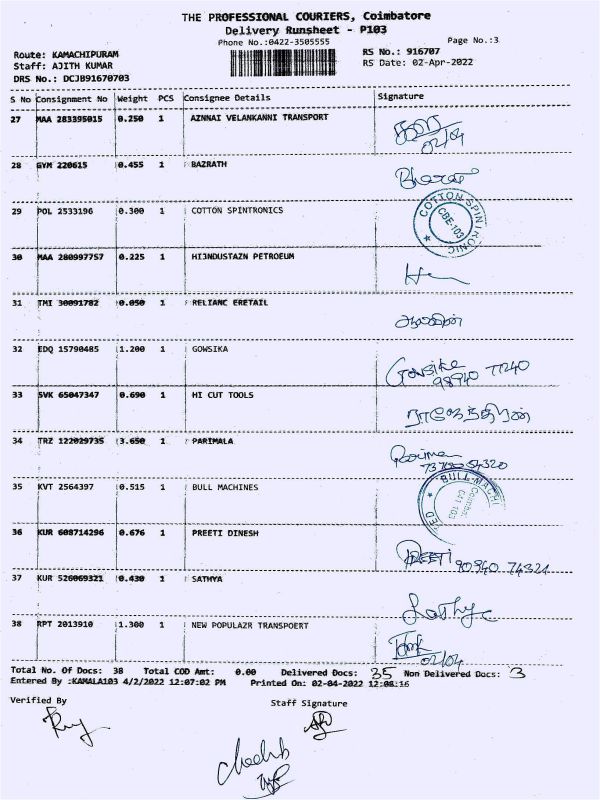 THE PROFESSIONAL COURIERS, Coimbatore
Delivery Runsheet - P103
Phone No.:0422-3505555 Page No.:3
Route: KAMACHIPURAM RS No.: 916707
Staff: AJITH KUMAR RS Date: 02-Apr-2022
DRS No.: DCJB91670703
S No Consignment No Weight PCS Consignee Details Signature
27 MAA 283395015 0.250 1 AZNNAI VELANKANNI TRANSPORT
02/04
28 GYM 220615 0.455 1 BAZRATH
Bharat
29 POL 2533196 0.300 1 COTTON SPINTRONICS
COTTON SPINTRONIC
CBE-103
30 MAA 280997757 0.225 1 HI3NDUSTAZN PETROEUM
31 TMI 30091782 0.050 1 RELIANC ERETAIL
32 EDQ 15790485 1.200 1 GOWSIKA
Gowsika
98940 77240
33 SVK 65047347 0.690 1 HI CUT TOOLS
ராஜேந்திரன்
34 TRZ 122029735 3.650 1 PARIMALA
54320
35 KVT 2564397 0.515 1 BULL MACHINES
BULL MACHI
36 KUR 608714296 0.676 1 PREETI DINESH
PREETI 90940 74324
37 KUR 526069321 0.430 1 SATHYA
Sathya
38 RPT 2013910 1.300 1 NEW POPULAZR TRANSPOERT
02/04
Total No. Of Docs: 38 Total COD Amt: 0.00 Delivered Docs: 35 Non Delivered Docs: 3
Entered By :KAMALA103 4/2/2022 12:07:02 PM Printed On: 02-04-2022 12:08:16
Verified By Staff Signature